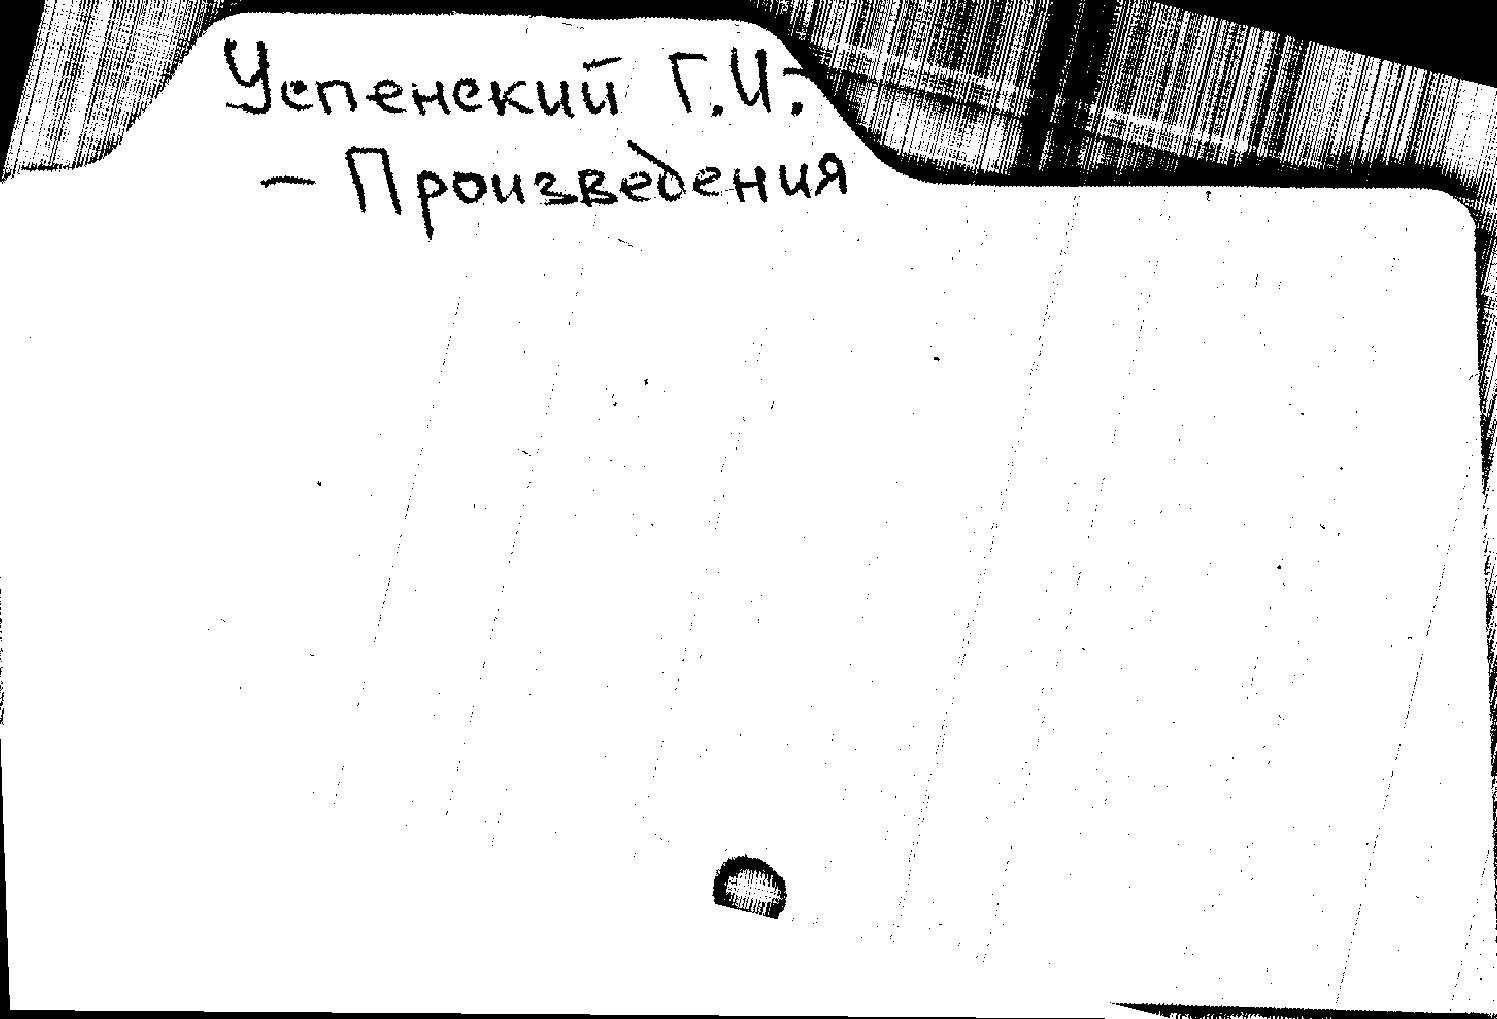 Успенский Г.И.-
- Произведения